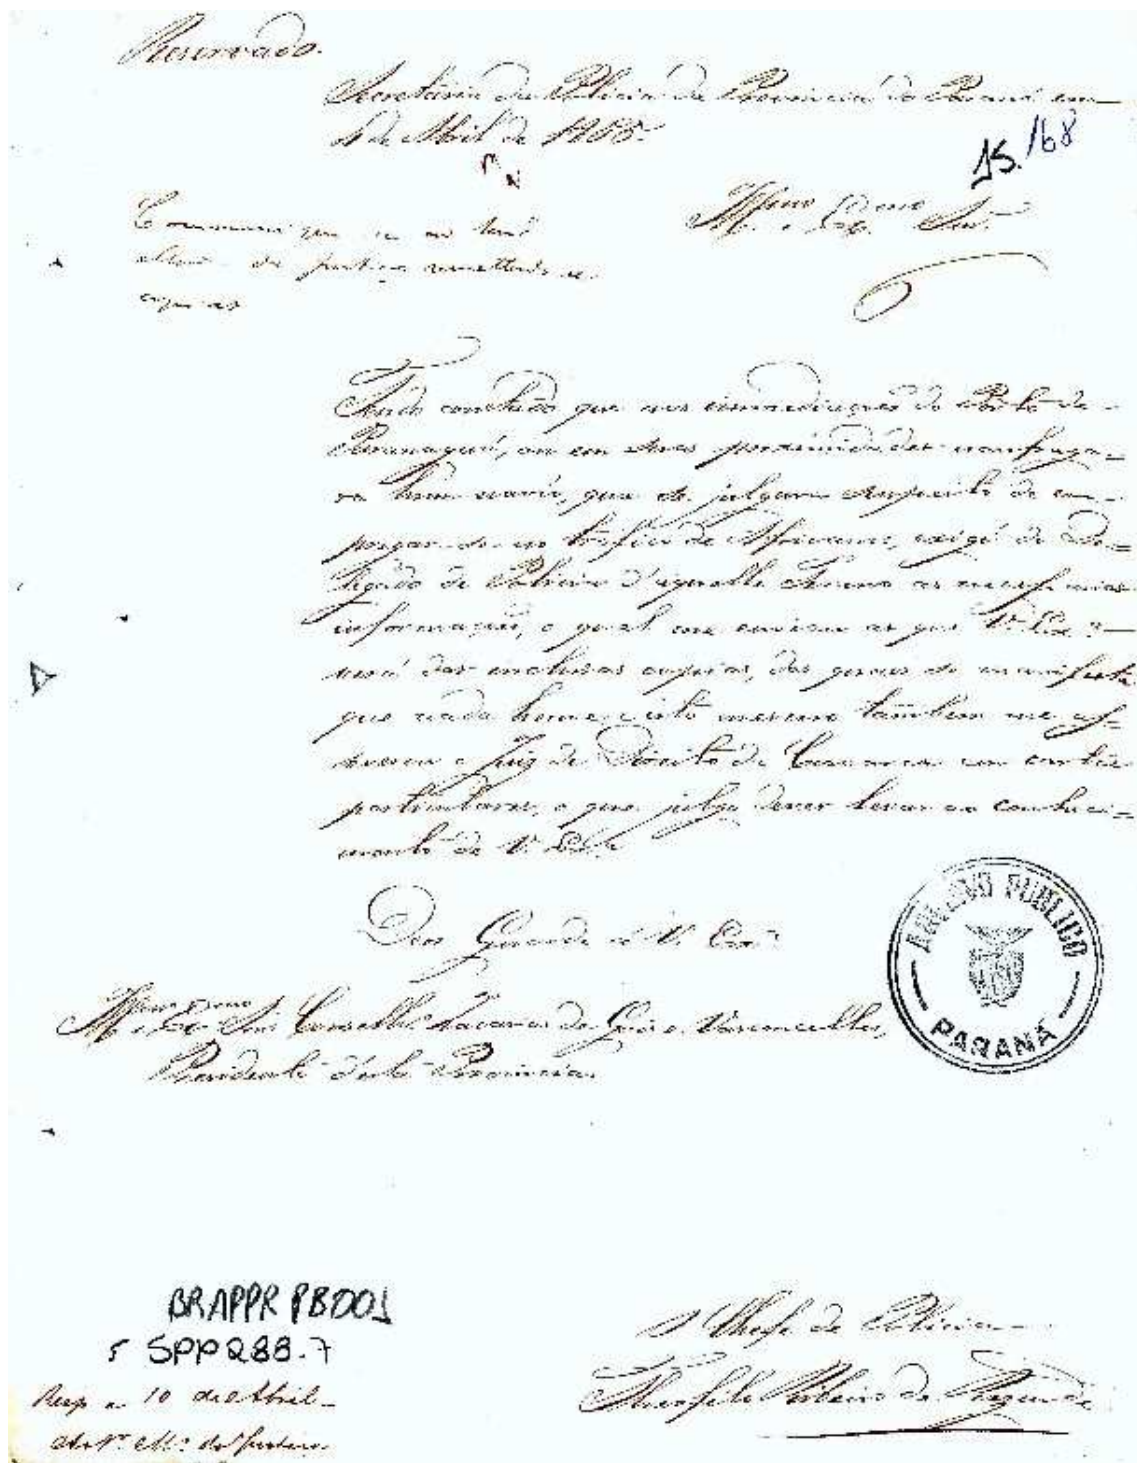 Reservado.
Secretaria da Policia da Provincia do Paraná em
4 de Abril de 1855.
15. /68
Illmo e Exmo Snr.
Communique-se ao
da justiça remettendo-se
copias
Tendo constado que nas immediações do Porto de
Paranaguá, ou em suas proximidades naufraga=
ra hum navio, que se julgava suspeito de em=
pregar-se no trafico de Africanos, exigi do De=
legado de Policia d'aquelle Termo as
informações, o qual me enviou as que V. Exa
verá das inclusas copias, das quaes se manifesta
que nada houve, e isto mesmo tambem me es=
creveu o Juiz de Direito da Comarca em cartas
particulares, o que julgo dever levar ao conheci=
mento de V. Exa
Deos Guarde a V. Exa
Illmo e Exmo Snr Conselhro Zacarias de Góes e Vasconcellos,
Presidente desta Provincia.
ARQUIVO PÚBLICO
PARANÁ
BRAPPR PB001
SPP288.7
Resp a 10 de Abril
Mo da Justiça
O Chefe de Policia
Theofilo Ribeiro de Rezende